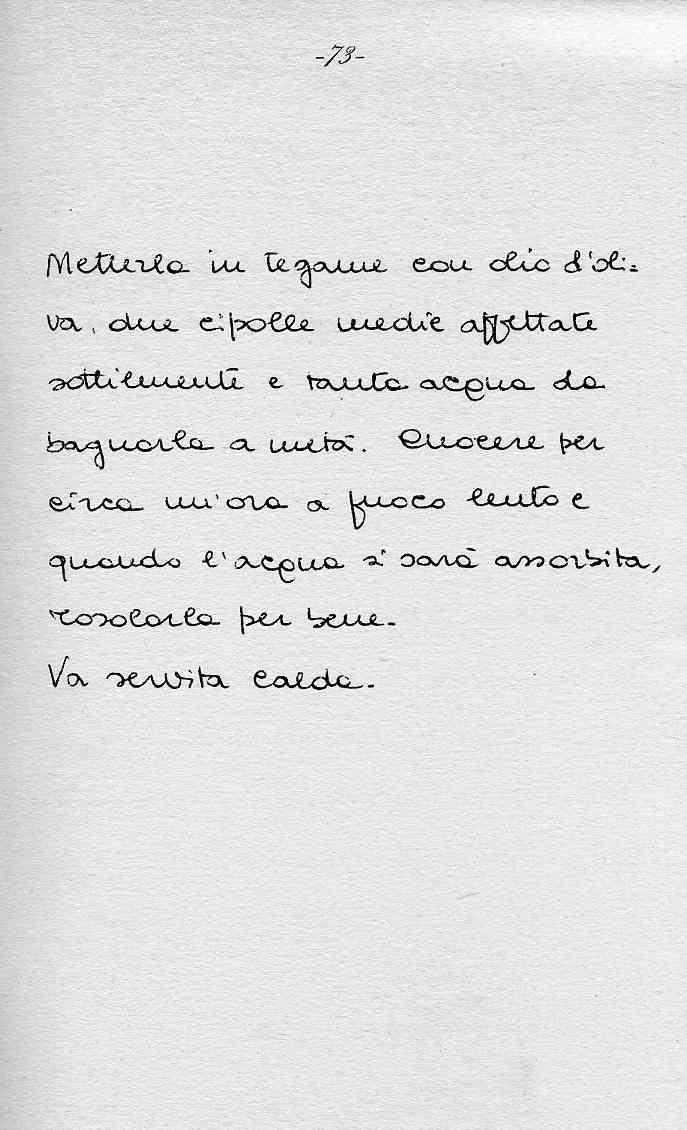 -73-
Metterla in tegame con olio d'oli=
va, due cipolle medie affettate
sottilmente e tanta acqua da
bagnarla a metà. Cuocere per
circa un'ora a fuoco lento e
quando l'acqua si sarà assorbita,
rosolarla per bene.
Va servita calda.